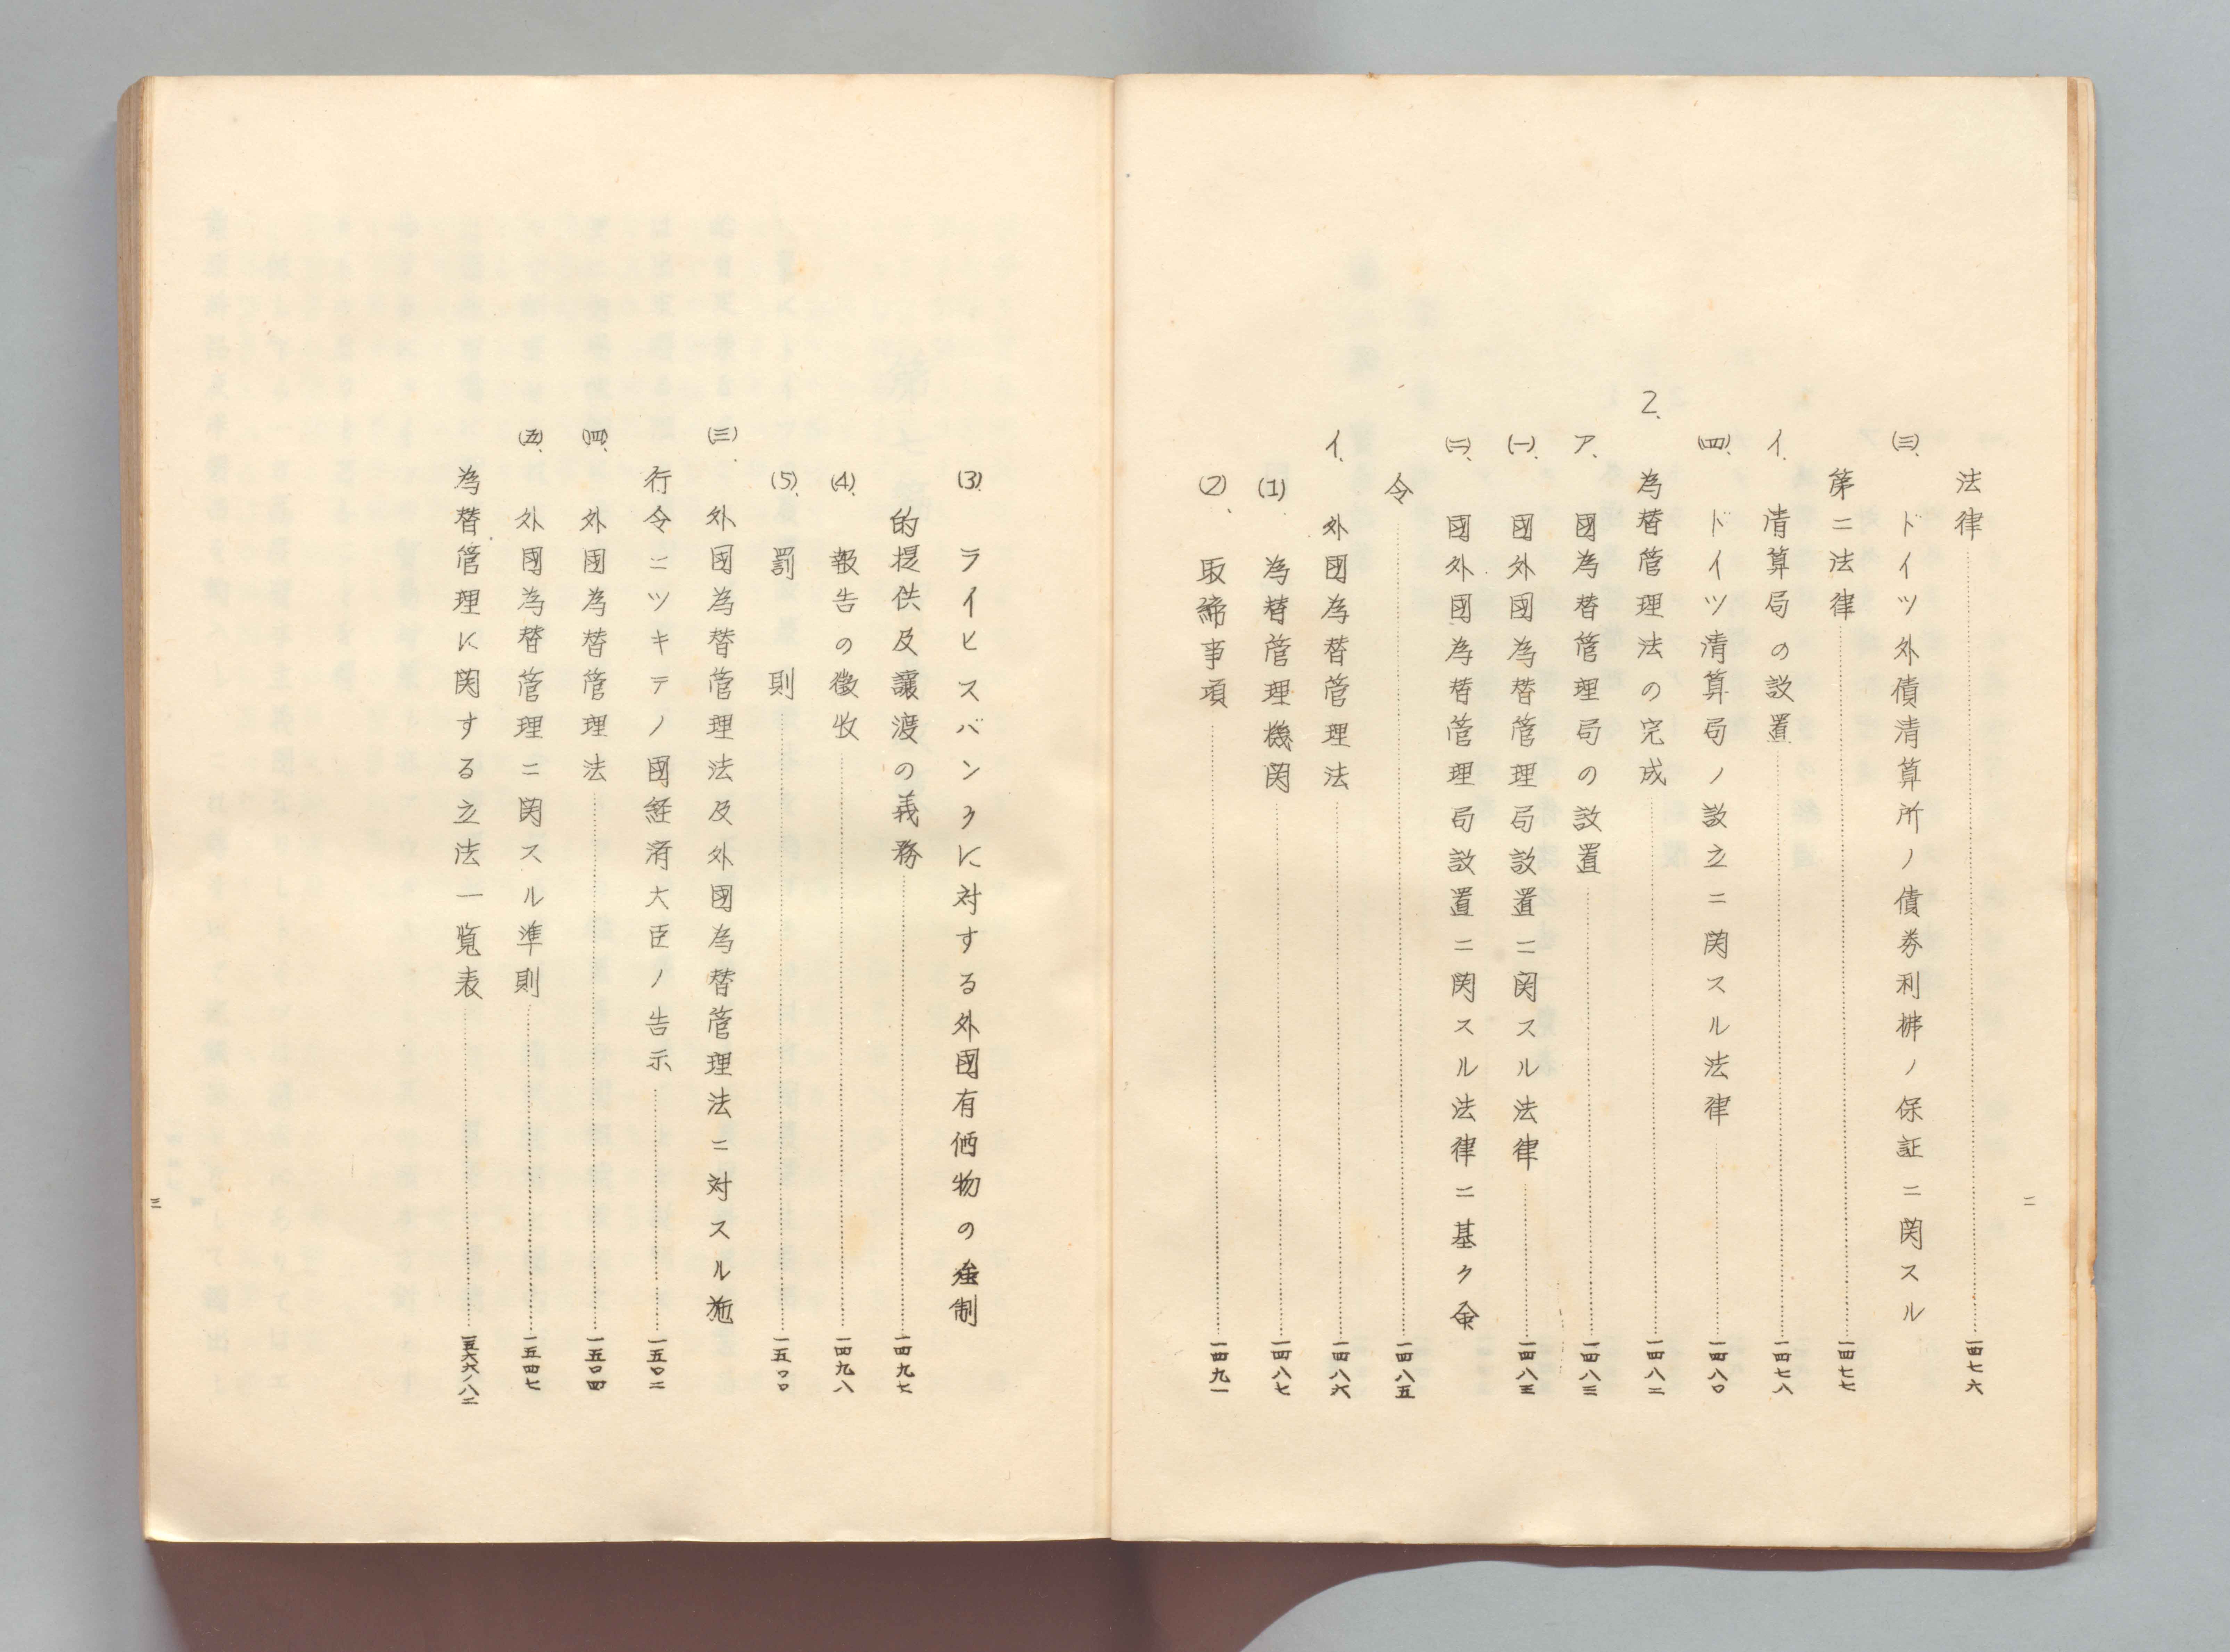 法律………一四七六
㈢、ドイツ外債清算所ノ債券利拂ノ保証ニ関スル
第二法律………一四七七
イ、清算局の設置………一四七八
㈣、ドイツ清算局ノ設立ニ関スル法律………一四八〇
2、為替管理法の完成………一四八二
ア、國為替管理局の設置………一四八三
㈠、國外國為替管理局設置ニ関スル法律………一四八三
㈡、國外國為替管理局設置ニ関スル法律ニ基ク命
令………一四八五
イ、外國為替管理法………一四八六
(1) 為替管理機関………一四八七
(2)、取締事項………一四九一
二
(3) ライヒスバンクに対する外國有価物の強制
的提供及讓渡の義務………一四九七
(4)、報告の徴收………一四九八
(5)、罰則………一五〇〇
㈢、外國為替管理法及外國為替管理法ニ対スル施
行令ニツキテノ國経済大臣ノ告示………一五〇二
㈣、外國為替管理法………一五〇四
㈤、外國為替管理ニ関スル準則………一五四七
為替管理に関する立法一覧表………
三